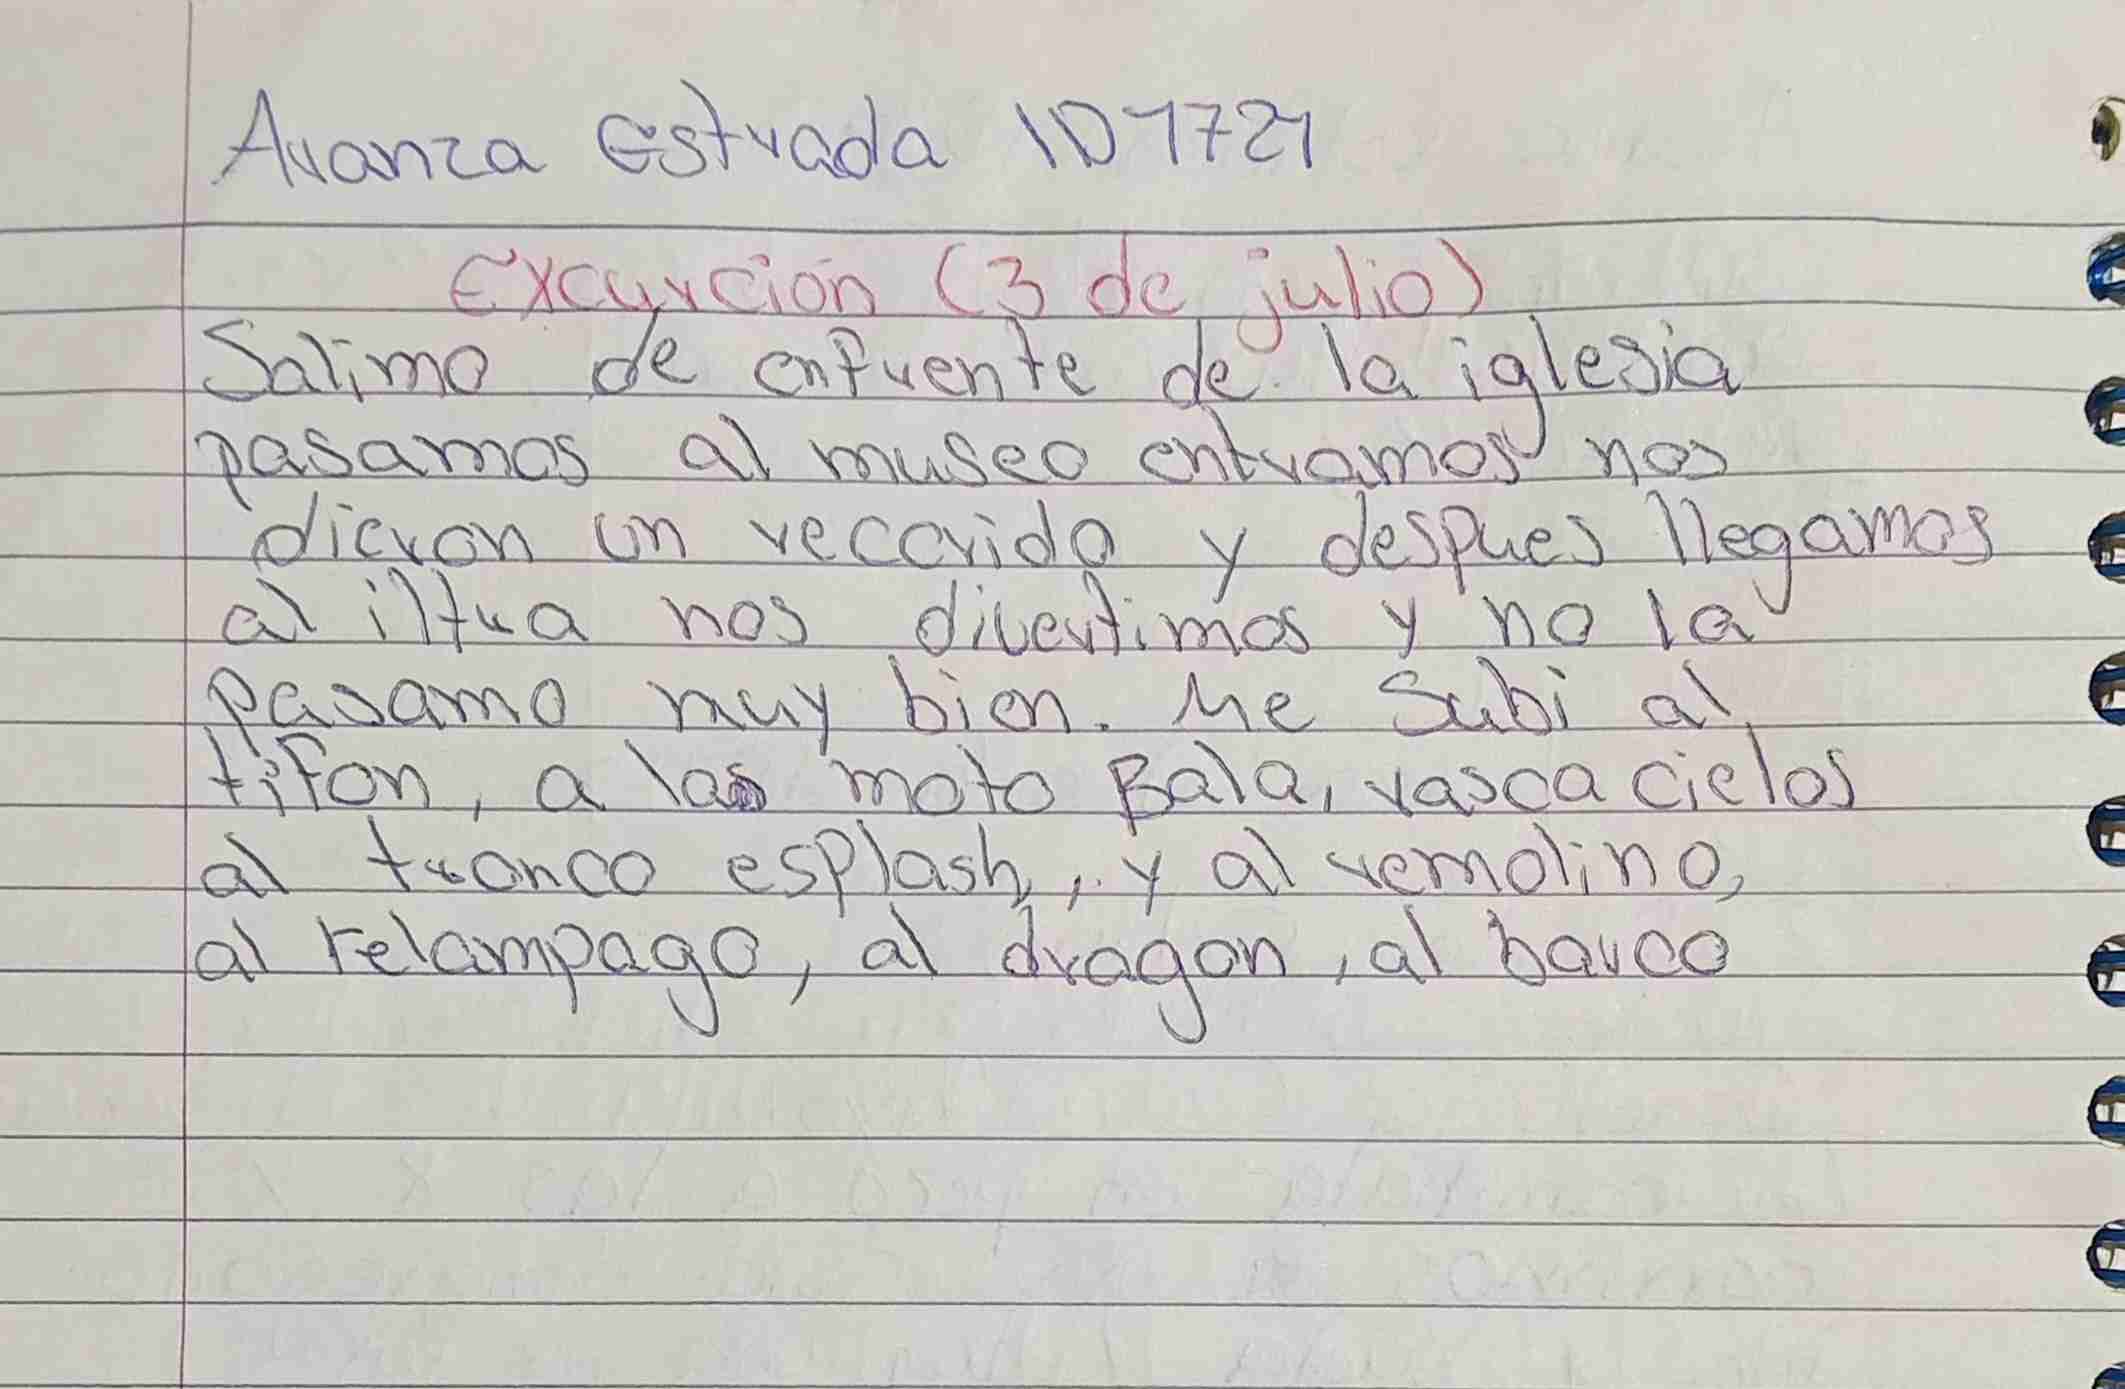 Avanza Estrada ID 1721
Excurción (3 de julio)
Salimo de enfrente de la iglesia
pasamos al museo entramos nos
dieron un recorido y despues llegamos
al iltra nos divertimos y no la
pasamo muy bien. Me Subi al
tifon, a las moto Bala, rasca cielos
al tronco esplash, y al remolino,
al relampago, al dragon, al barco